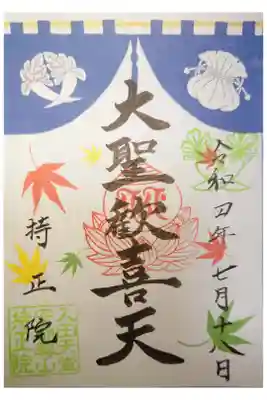 令和四年七月十八日
大聖歓喜天
待正院